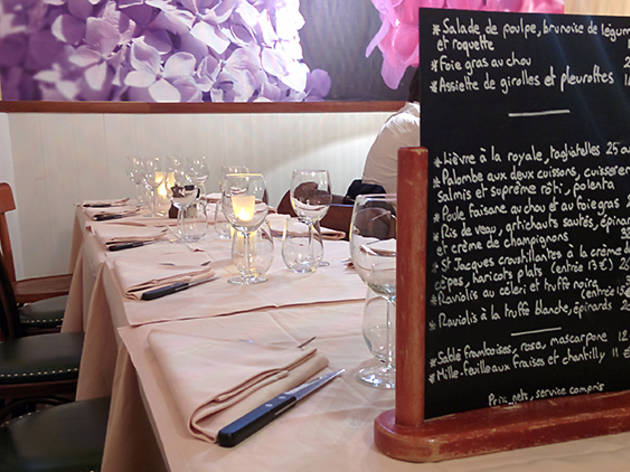 * Salade de poulpe, brunoise de légum
et roquette
* Foie gras au chou
* Assiette de girolles et pleurottes
* Lièvre à la royale, tagliatelles 25
* Palombe aux deux cuissons, cuisses en
Salmis et suprême rôti, polenta
* Poule faisane au chou et au foie gras 2
* Ris de veau, artichauts sautés, épinards
et crème de champignons
* St Jacques croustillantes à la crème d
cèpes, haricots plats (entrée 13 €)
* Raviolis au céleri et truffe noire
(entrée 15€
* Raviolis à la truffe blanche, épinards
* Sablé framboises, rosa, mascarpone 12
* Mille-feuilles aux fraises et chantilly 11 €
Prix nets, service compris